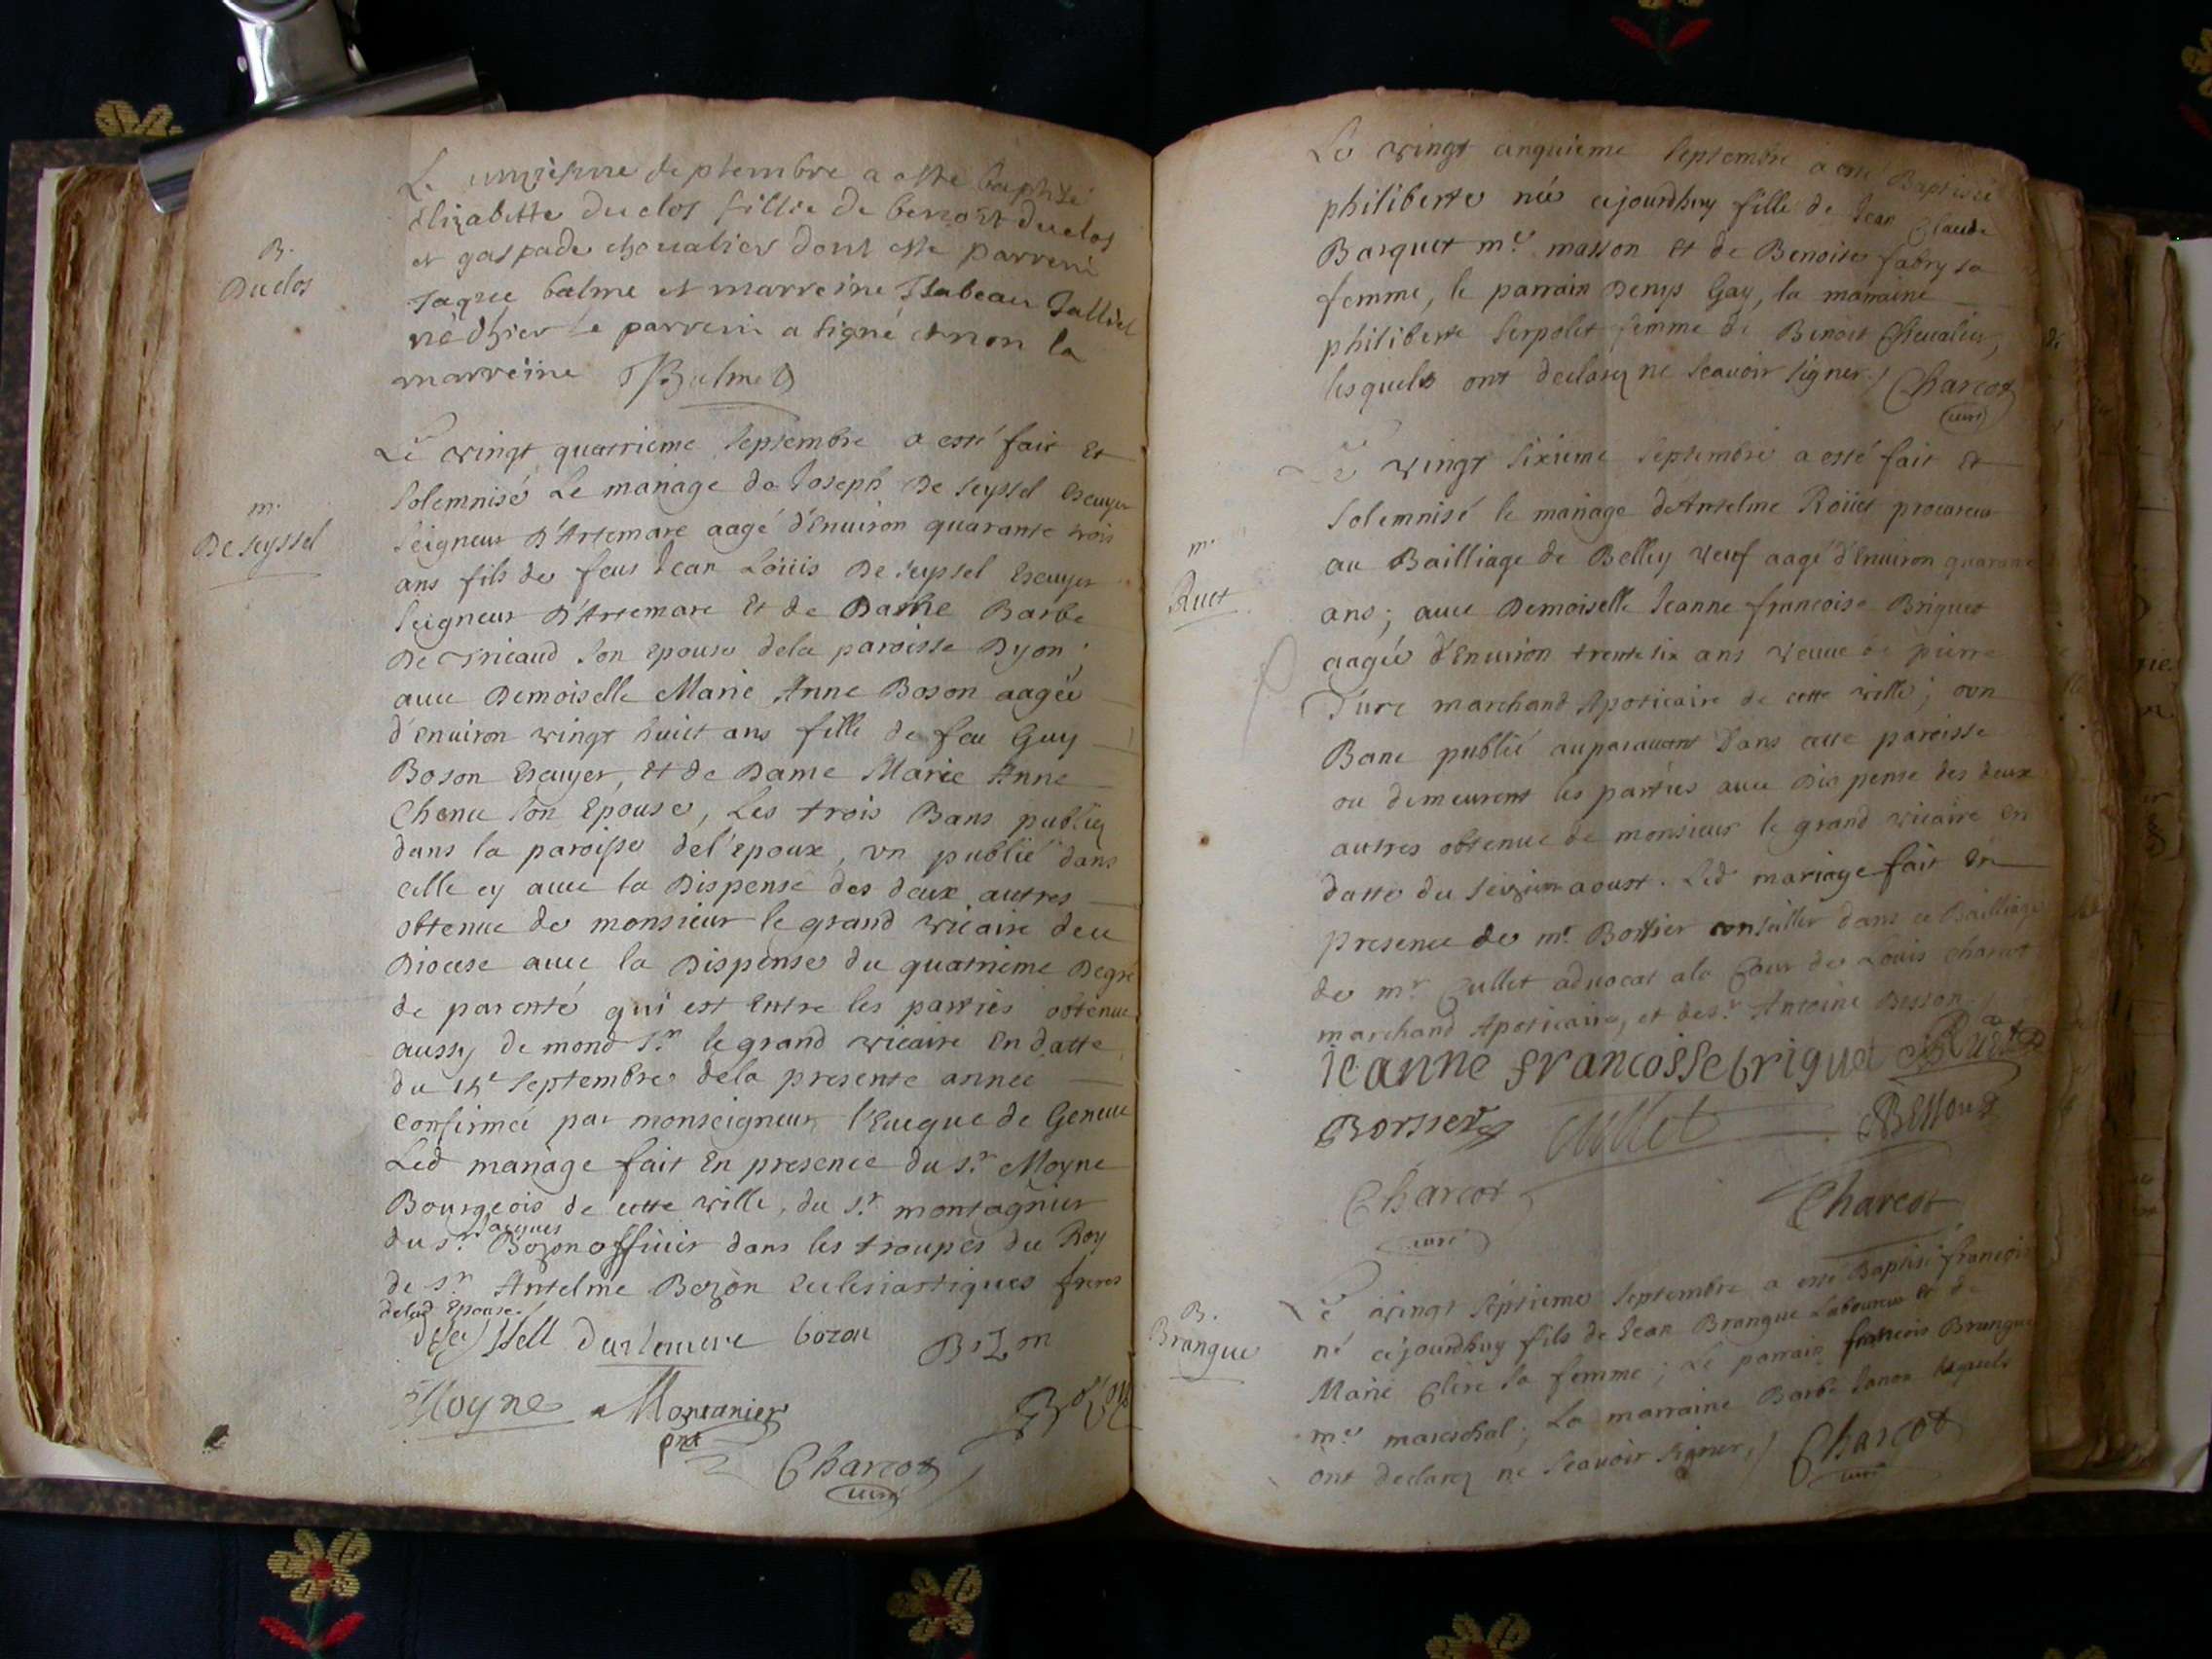 B.
Duclos
Le septembre a esté baptisé
Elizabette duclos fillie de benoist duclos
et gaspade chevalier dont este parrein
Jaque balme et marreine Isabeau
né dhier le parrein a signé et non la
marreine JBalme
m.
De seyssel
Le vingt quatrieme septembre a esté fait et
solemnisé Le mariage de Joseph De seyssel Escuyer
seigneur D'Artemare aagé d'Enuiron quarante trois
ans fils de feus Jean Loüis De seyssel Escuyer
seigneur D'Artemare Et de Dame Barbe
De son epouse dela paroisse Dyon ;
auec Demoiselle Marie Anne Boson aagée
d'enuiron vingt huict ans fille de feu Guy
Boson Escuyer, Et de Dame Marie Anne
Chenu son Epouse, Les trois Bans publiez
dans la paroisse del'epoux, vn publié dans
celle cy auec la Dispense des deux autres
obtenue de monsieur le grand vicaire dece
Diocese auec la Dispense du quatrieme Degré
de parenté qui est entre les parties obtenue
aussy de mond Sr. le grand vicaire en datte
du septembre dela presente année
confirmée par monseigneur l'Eueque de Geneue
Led mariage fait En presence du Sr. Moyne
Bourgeois de cette ville, du Sr. montagnier
du Sr. Jacques Bozon officier dans les troupes du Roy
de Sr. Antelme Bozon Ecclesiastiques freres
delad Epouse./
deseyssell Dartemare bozon Bozon
Moyne Montanier Bozon
pnt
Charcot
curé
Le vingt cinquieme septembre a esté Baptisée
philiberte née cejourdhuy fille de Jean Claude
Basquet me. masson et de Benoite fabry sa
femme, le parrain Denys Gay, la marraine
philiberte serpolet femme de Benoit Cheualier,
lesquels ont declarez ne scauoir signer./ Charcot
curé
m.
Ruet
Le vingt sixieme septembre a esté fait et
solemnisé le mariage de Antelme Roüet procureur
au Bailliage de Belley veuf aagé d'Enuiron quarante
ans ; auec Demoiselle Jeanne francoise Briquet
aagée d'enuiron trente six ans veuue de pierre
marchand Apoticaire de cette ville ; vn
Banc publié auparauant dans cette paroisse
ou demeurent les parties auec Dispense des deux
autres obtenue de monsieur le grand vicaire en
datte du seizieme aoust. Led mariage fait En
presence de mr. Borssier conseiller dans ce Bailliage
de mr. Cullet aduocat ala Cour de Louis charcot
marchand Apoticaire, et de sr. Antoine Besson
ieanne francoisse brique Ruet
Borssier Cullet Besson
Charcot Charcot
curé
B.
Brangue
Le vingt septieme septembre a esté Baptisé francois
né cejourdhuy fils de Jean Brangue Laboureur et de
Marie Clere sa femme ; Le parrain francois Brangue
me. mareschal ; La marraine Barbe lesquels
ont declarez ne scauoir signer./ Charcot
curé